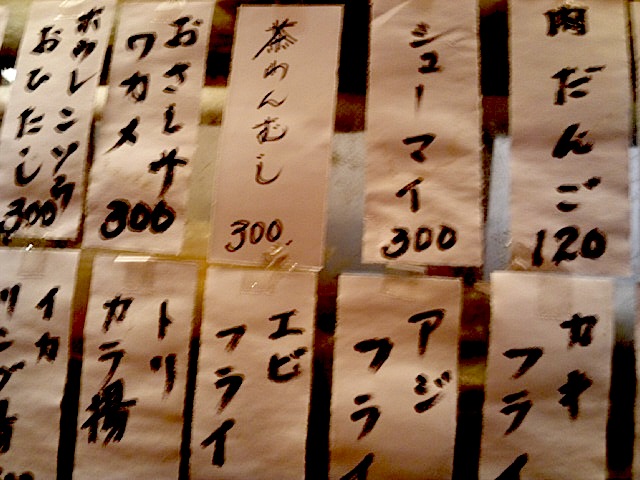 肉だんご
120
シューマイ
300
茶わんむし
300
おさしみ
ワカメ
300
ホウレンソウ
おひたし
300
カキ
フライ
アジ
フライ
エビ
フライ
トリ
カラ揚
イカ
リング